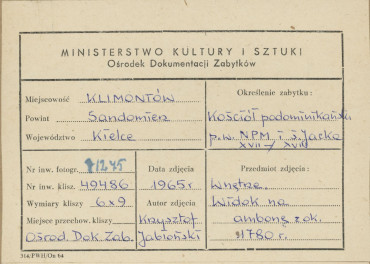 MINISTERSTWO KULTURY I SZTUKI
Ośrodek Dokumentacji Zabytków
Miejscowość KLIMONTÓW
Powiat Sandomierz
Województwo Kielce
Określenie zabytku:
Kościół podominikański
p.w. NPM i ś. Jacka
XVII-XVIII
Nr inw. fotogr. 81275
Nr inw. klisz. 49486
Wymiary kliszy 6x9
Miejsce przechow. kliszy
Ośrod. Dok. Zab.
Data zdjęcia
1965 r
Autor zdjęcia:
Krzysztof
Jabłoński
Przedmiot zdjęcia:
Wnętrze.
Widok na
ambonę z ok.
1780 r.
314/PWH/On 64